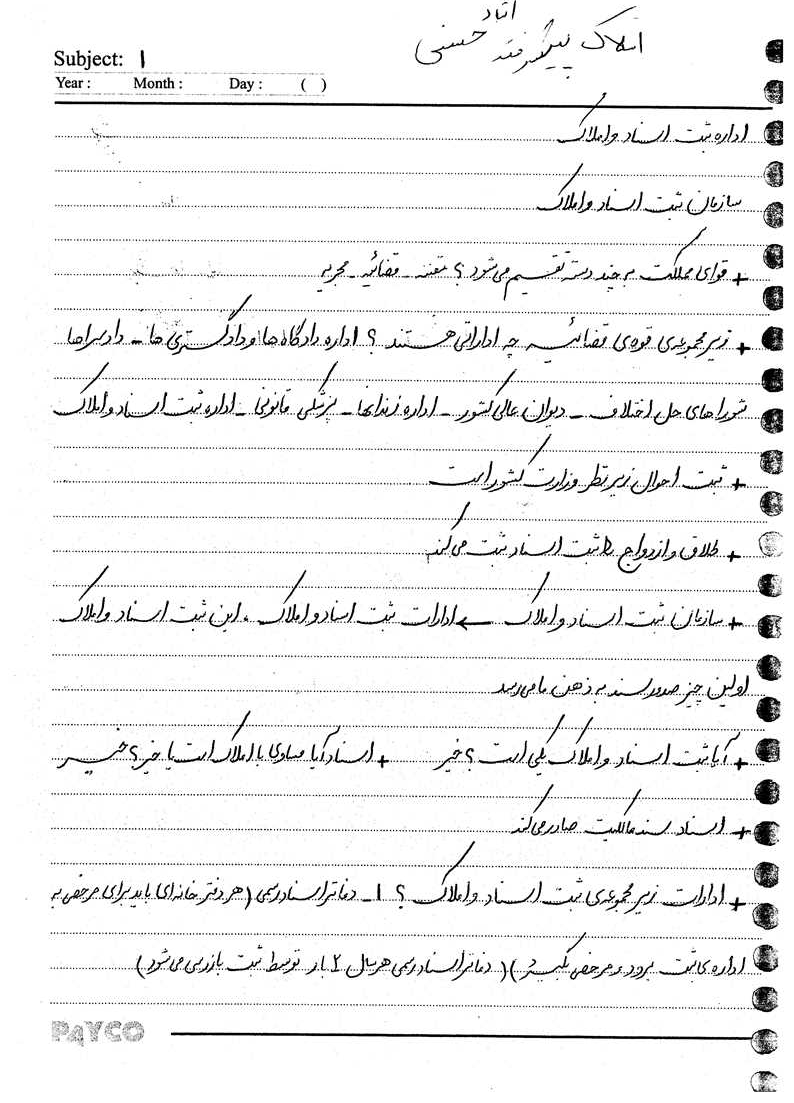 استاد
املاک پیشرفته حسنی
Subject: 1
Year : Month : Day : ( )
اداره ثبت اسناد و املاک
سازمان ثبت اسناد و املاک
+ قوای مملکت به چند دسته تقسیم می شود ؟ مقننه - قضائیه - مجریه
+ زیرمجموعه ی قوه ی قضائیه چه اداراتی هستند ؟ اداره دادگاه ها و دادگستری ها - دادسراها
شوراهای حل اختلاف - دیوان عالی کشور - اداره زندانها - پزشکی قانونی - اداره ثبت اسناد و املاک
+ ثبت احوال زیر نظر وزارت کشور است
+ طلاق و ازدواج را ثبت اسناد ثبت می کند
+ سازمان ثبت اسناد و املاک ← ادارات ثبت اسناد و املاک . این ثبت اسناد و املاک
اولین چیز صدور سند به ذهن ما می رسد
+ آیا ثبت اسناد و املاک یکی است ؟ خیر + اسناد آیا مساوی با املاک است یا خیر ؟ خیر
+ اسناد سند مالکیت صادر می کند
+ ادارات زیر مجموعه ی ثبت اسناد و املاک ؟ 1- دفاتر اسناد رسمی ( هر دفترخانه ای باید برای مرخصی به
اداره ی ثبت برود و مرخصی بگیرد ) ( دفاتر اسناد رسمی هر سال ۲ بار توسط ثبت بازرسی می شود )
PAYCO